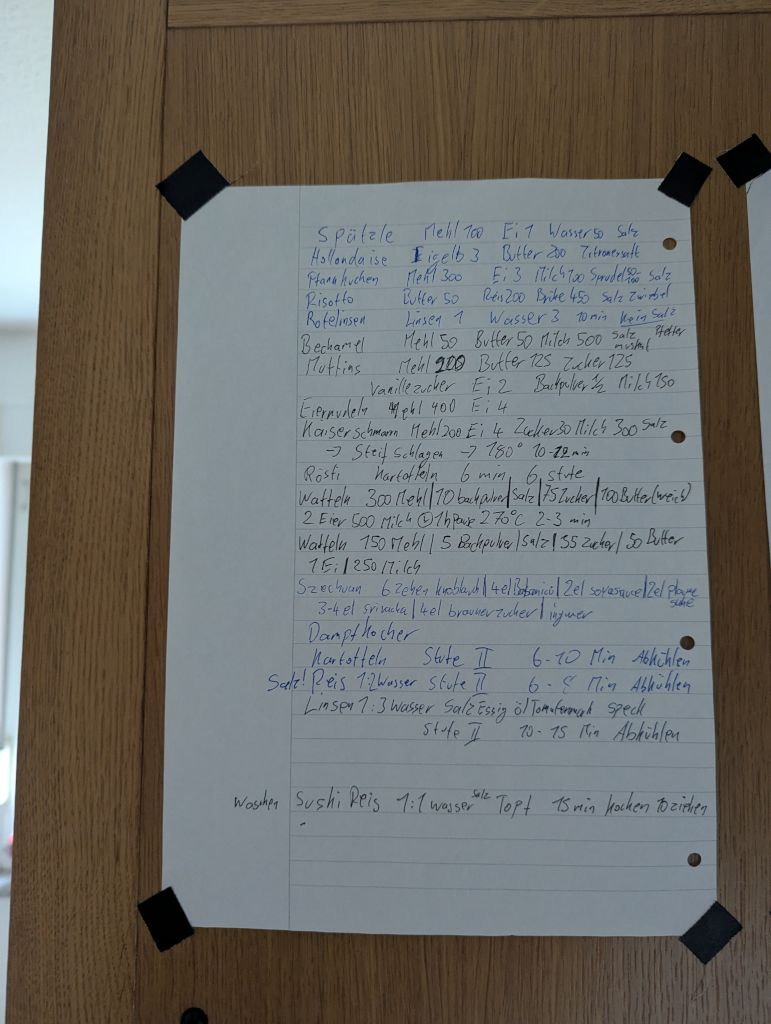 Spätzle Mehl 100 Ei 1 Wasser 50 Salz
Hollondaise Eigelb 3 Butter 200 Zitronensaft
Pfannkuchen Mehl 300 Ei 3 Milch 100 Sprudel 50-100 Salz
Risotto Butter 50 Reis 200 Brühe 450 Salz Zwiebel
Rotelinsen Linsen 1 Wasser 3 10 min kein Salz
Bechamel Mehl 50 Butter 50 Milch 500 Salz Pfeffer muskat
Muffins Mehl 200 Butter 125 Zucker 125
Vanillezucker Ei 2 Backpulver 1/2 Milch 150
Eiernudeln Mehl 400 Ei 4
Kaiserschmarn Mehl 200 Ei 4 Zucker 30 Milch 300 Salz
→ Steif Schlagen → 180° 10-12 min
Rösti Kartoffeln 6 min 6 stufe
Waffeln 300 Mehl | 10 backpulver | Salz | 75 Zucker | 100 Butter (weich)
2 Eier 500 Milch 1h Pause 270°C 2-3 min
Waffeln 150 Mehl | 5 Backpulver | Salz | 35 Zucker | 50 Butter
1 Ei | 250 Milch
Szechuan 6 zehen knoblauch | 4el | 2el soyasauce | 2el
3-4el sriracha | 4el braunerzucker | ingwer
Dampfkocher
Kartoffeln Stufe II 6-10 Min Abkühlen
Salz! Reis 1:2 Wasser Stufe II 6-8 Min Abkühlen
Linsen 1:3 Wasser Salz Essig öl Tomatenmark speck
Stufe II 10-15 Min Abkühlen
Waschen Sushi Reis 1:1 wasser Salz Topf 15 min kochen 10 ziehen